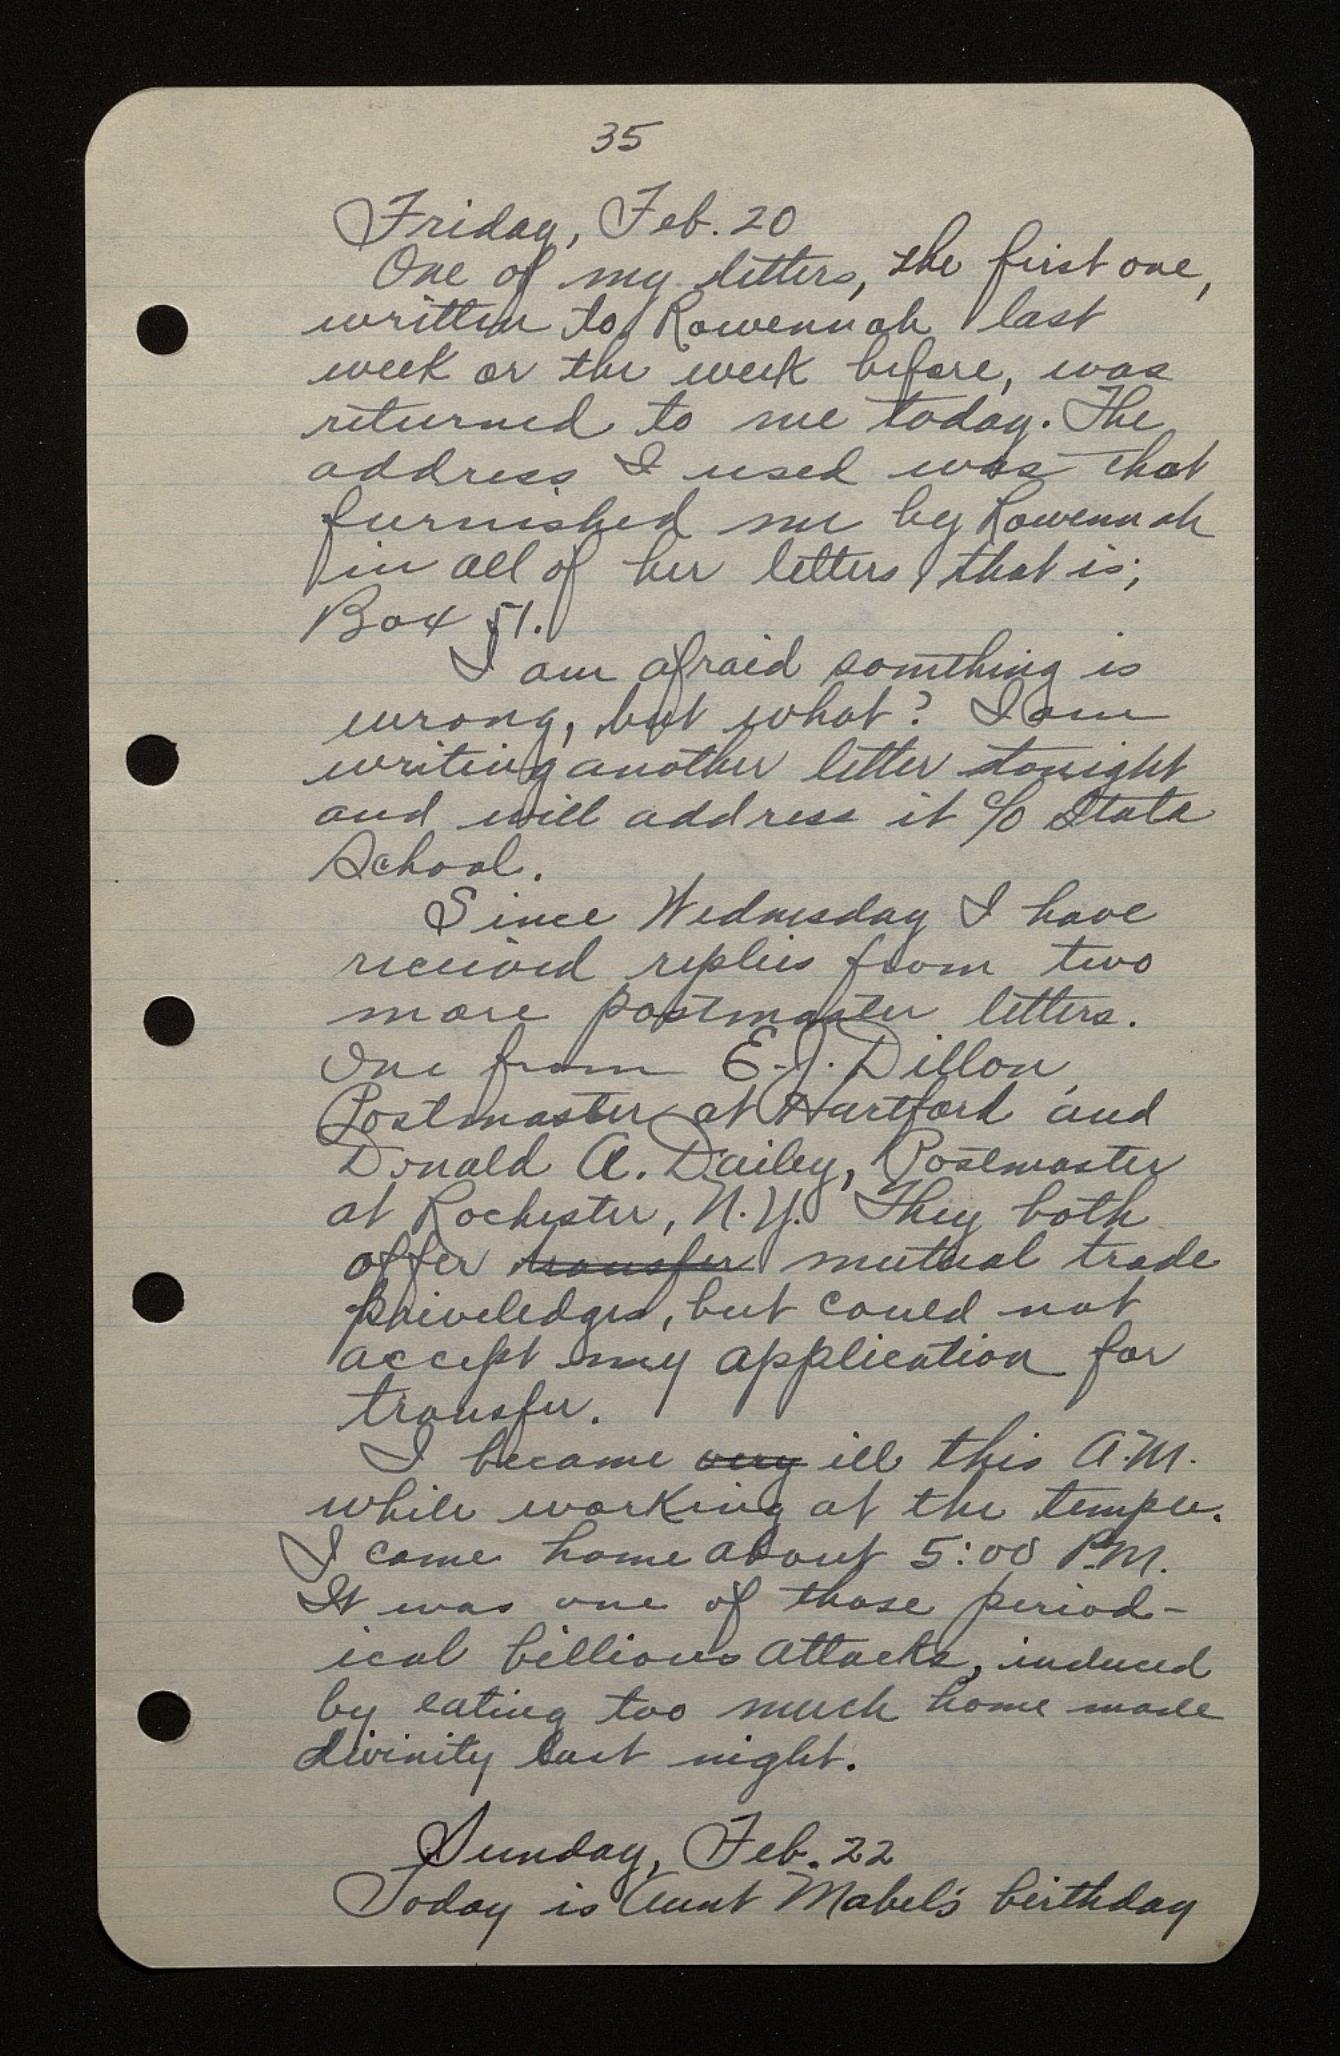 35
Friday, Feb. 20
One of my letters, the first one,
written to Rowennah last
week or the week before, was
returned to me today. The
address I used was that
furnished me by Rowennah
in all of her letters, that is;
Box 51.
I am afraid something is
wrong, but what? I am
writing another letter tonight
and will address it c/o State
School.
Since Wednesday I have
received replies from two
more postmaster letters.
One from E.J. Dillon,
Postmaster at Hartford and
Donald A. Dailey, Postmaster
at Rochester, N.Y. They both
offer transfer mutual trade
priveledges, but could not
accept my application for
transfer.
I became very ill this A.M.
while working at the temple.
I came home about 5:00 P.M.
It was one of those period-
ical billious attacks, induced
by eating too much home made
divinity last night.
Sunday, Feb. 22
Today is Aunt Mabel's birthday